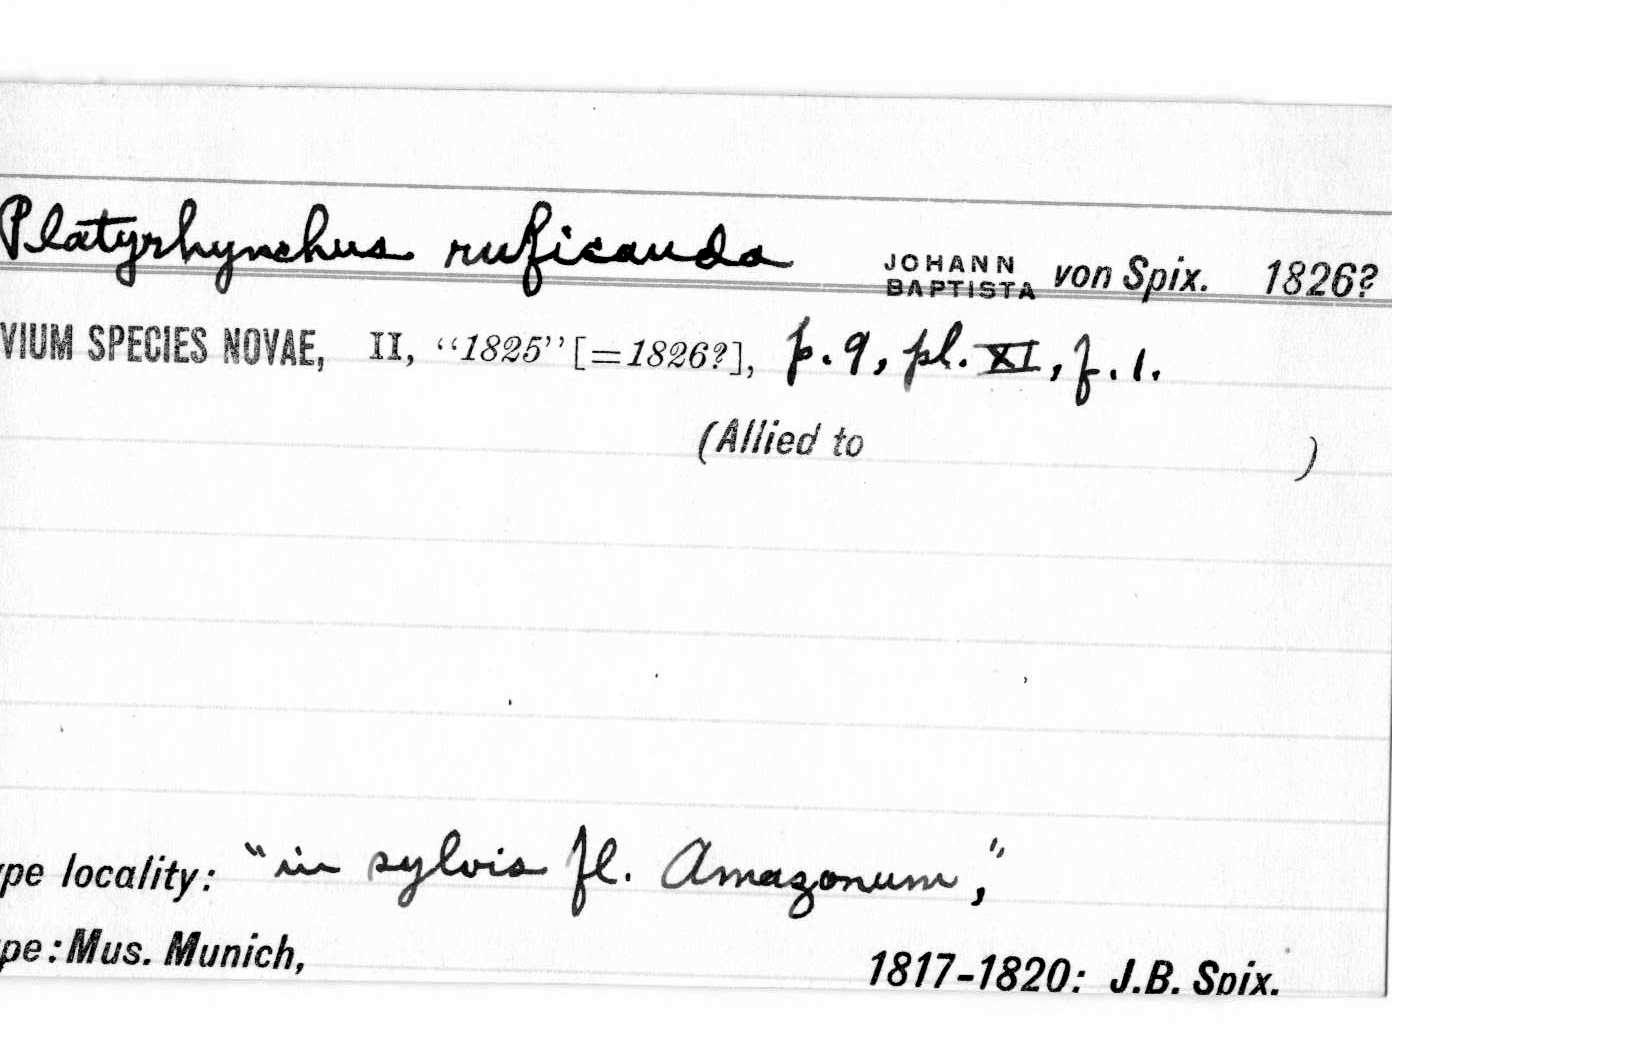 Platyrhynchus ruficauda JOHANN BAPTISTA von Spix. 1826?
VIUM SPECIES NOVAE, II, "1825" [=1826?], p. 9, pl. XI, f. 1.
(Allied to )
ype locality: "in sylvis fl. Amazonum,"
ype: Mus. Munich, 1817-1820: J.B. Spix.